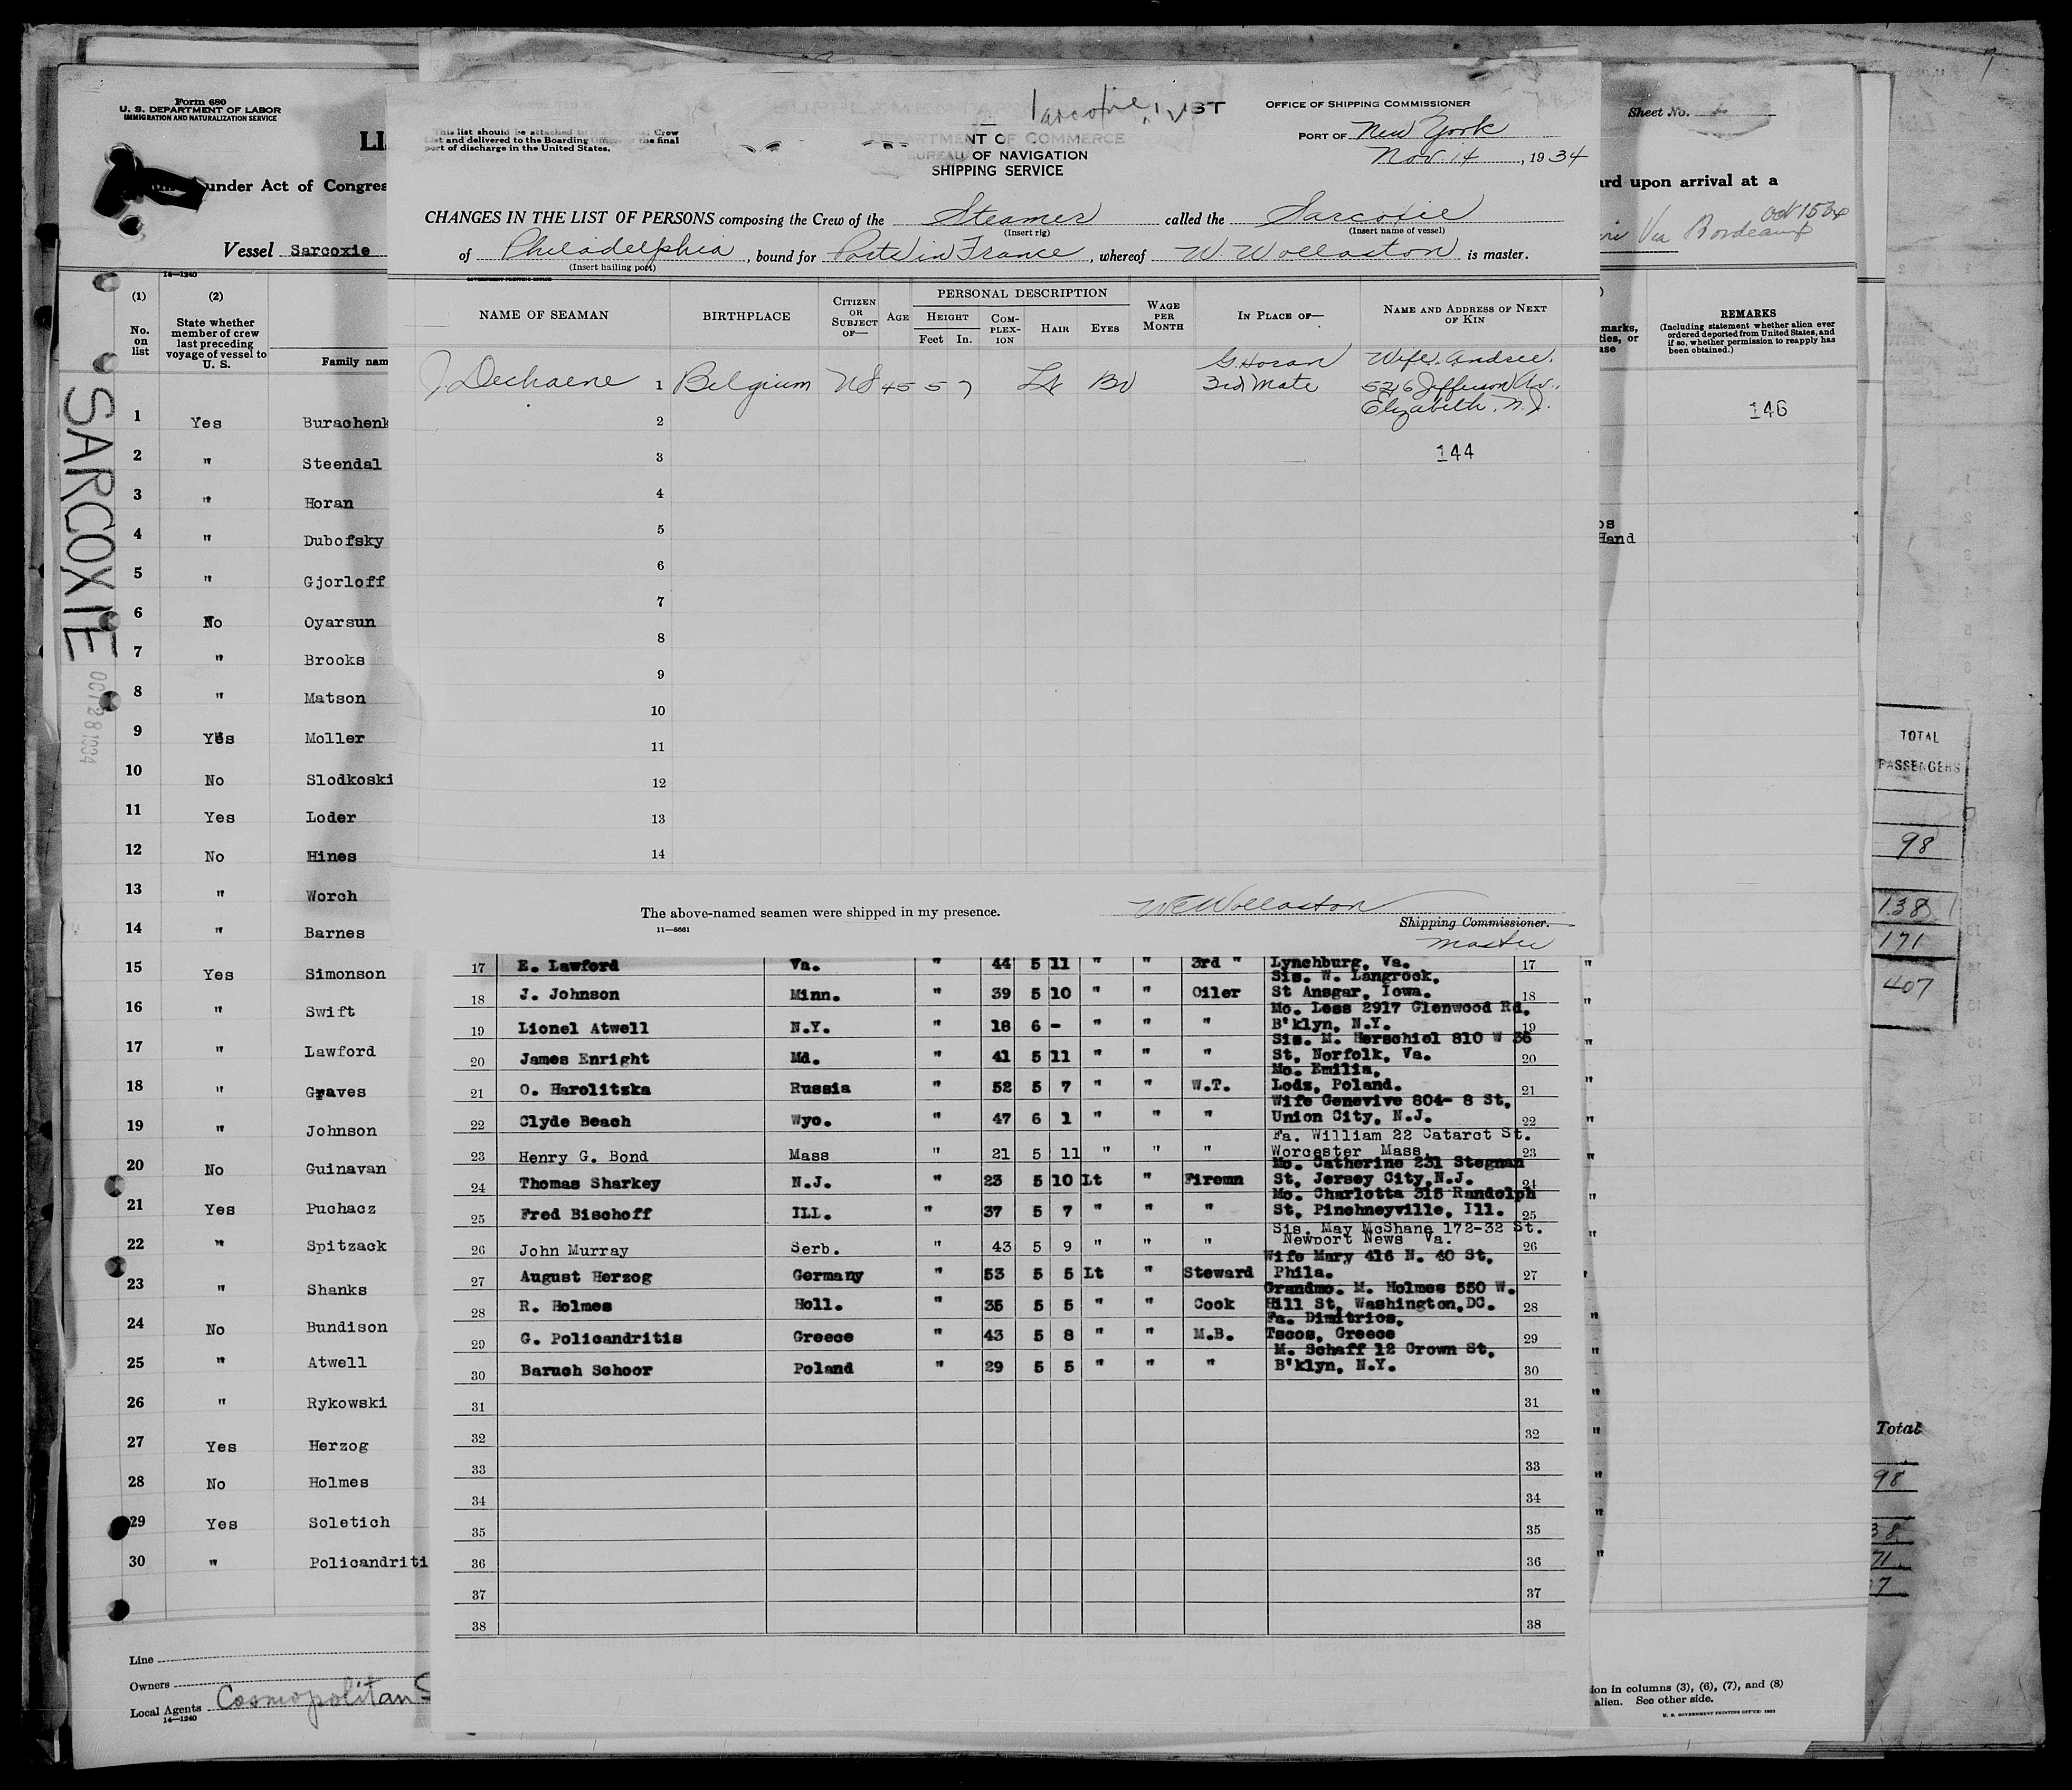 Form 680
U. S. DEPARTMENT OF LABOR
IMMIGRATION AND NATURALIZATION SERVICE
under Act of Congres
Vessel Sarcoxie
14—1240
(1) (2)
No. on list
State whether member of crew last preceding voyage of vessel to U. S.
Family nam
SARCOXIE
OCT 28 1934
1 Yes Burachenk
2 " Steendal
3 " Horan
4 " Dubofsky
5 " Gjorloff
6 No Oyarsun
7 " Brooks
8 " Matson
9 Yes Moller
10 No Slodkoski
11 Yes Loder
12 No Hines
13 " Worch
14 " Barnes
15 Yes Simonson
16 " Swift
17 " Lawford
18 " Graves
19 " Johnson
20 No Guinavan
21 Yes Puchacz
22 " Spitzack
23 " Shanks
24 No Bundison
25 " Atwell
26 " Rykowski
27 Yes Herzog
28 No Holmes
29 Yes Soletich
30 " Policandriti
Line
Owners
Local Agents Cosmopolitan S
14—1240
This list should be attached to the Crew
List and delivered to the Boarding Officer at the final
port of discharge in the United States.
DEPARTMENT OF COMMERCE
BUREAU OF NAVIGATION
SHIPPING SERVICE
OFFICE OF SHIPPING COMMISSIONER
PORT OF New York
Nov. 14, 1934
CHANGES IN THE LIST OF PERSONS composing the Crew of the Steamer called the Sarcoxie
(Insert rig) (Insert name of vessel)
of Philadelphia, bound for Ports in France, whereof W. Wollaston is master.
(Insert hailing port)
GOVERNMENT PRINTING OFFICE
NAME OF SEAMAN BIRTHPLACE CITIZEN OR SUBJECT OF— AGE PERSONAL DESCRIPTION HEIGHT Feet In. COMPLEXION HAIR EYES WAGE PER MONTH IN PLACE OF— NAME AND ADDRESS OF NEXT OF KIN
G. Horan Wife. Andree.
J Dechaene 1 Belgium US 45 5 7 Lt Br 3rd Mate 5216 Jefferson Av.,
Elizabeth, N.J.
2
3 144
4
5
6
7
8
9
10
11
12
13
14
The above-named seamen were shipped in my presence.
11—8661
WE Wollaston
Shipping Commissioner.
Master
17 E. Lawford Va. " 44 5 11 " " 3rd " Lynchburg, Va. 17
Sis. W. Langrock,
18 J. Johnson Minn. " 39 5 10 " " Oiler St Ansgar, Iowa. 18
Mo. Less 2917 Glenwood Rd.
19 Lionel Atwell N.Y. " 18 6 - " " " B'klyn, N.Y. 19
Sis. M. Herschiel 810 W 36
20 James Enright Md. " 41 5 11 " " " St, Norfolk, Va. 20
Mo. Emilia,
21 O. Harolitzka Russia " 52 5 7 " " W.T. Lodz, Poland. 21
Wife Genevive 804- 8 St,
22 Clyde Beach Wyo. " 47 6 1 " " " Union City, N.J. 22
Fa. William 22 Catarct St.
23 Henry G. Bond Mass " 21 5 11 " " " Worcester Mass. 23
Mo. Catherine 231 Stegnan
24 Thomas Sharkey N.J. " 23 5 10 Lt " Firemn St, Jersey City,N.J. 24
Mo. Charlotta 315 Randolph
25 Fred Bischoff ILL. " 37 5 7 " " " St, Pinchneyville, Ill. 25
Sis. May McShane 172-32 St.
26 John Murray Serb. " 43 5 9 " " " Newport News Va. 26
Wife Mary 416 N. 40 St,
27 August Herzog Germany " 53 5 5 Lt " Steward Phila. 27
Grandmo. M. Holmes 550 W.
28 R. Holmes Holl. " 35 5 5 " " Cook Hill St, Washington,DC. 28
Fa. Dimitrios,
29 G. Policandritis Greece " 43 5 8 " " M.B. Tscos, Greece 29
M. Schaff 12 Crown St,
30 Baruch Schoor Poland " 29 5 5 " " " B'klyn, N.Y. 30
31 31
32 32
33 33
34 34
35 35
36 36
37 37
38 38
Sheet No.
ard upon arrival at a
Oct 15 34
Via Bordeaux
REMARKS
(Including statement whether alien ever ordered deported from United States, and if so, whether permission to reapply has been obtained.)
marks,
ties, or
ase
146
os
Hand
TOTAL
PASSENGERS
98
138
171
407
Total
98
38
71
7
ion in columns (3), (6), (7), and (8)
alien. See other side.
U. S. GOVERNMENT PRINTING OFFICE: 1933